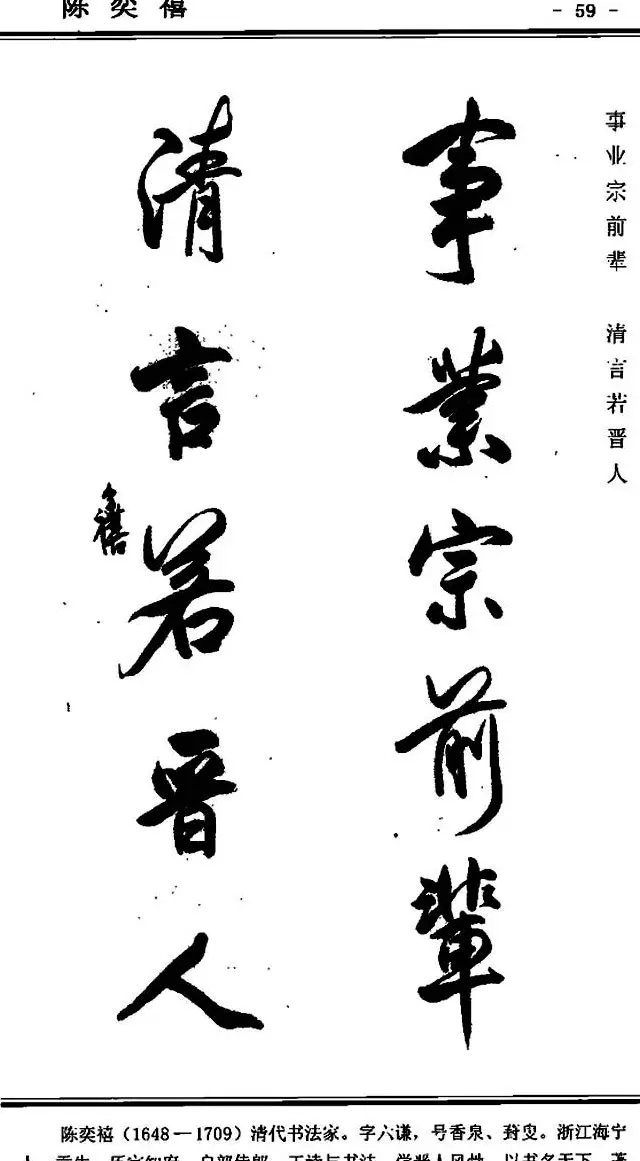 陈奕禧
- 59 -
事業宗前輩
清言若晋人
奕禧
事业宗前辈 清言若晋人
陈奕禧（1648—1709）清代书法家。字六谦，号香泉、葑叟。浙江海宁